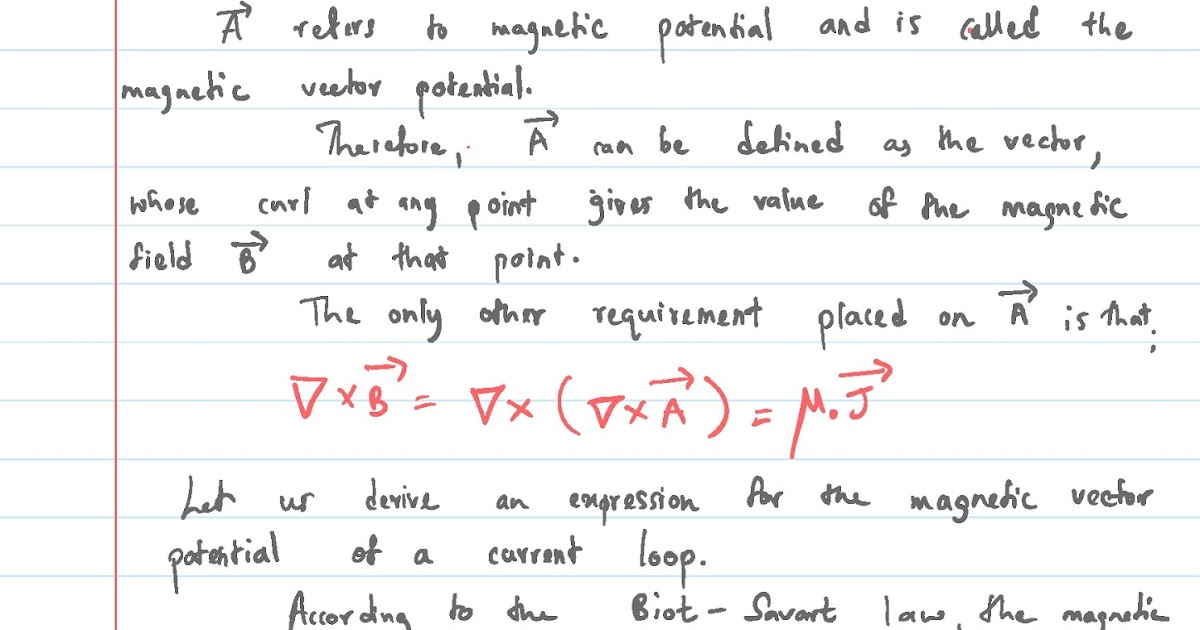 A⃗ refers to magnetic potential and is called the
magnetic vector potential.
Therefore, A⃗ can be defined as the vector,
whose curl at any point gives the value of the magnetic
field B⃗ at that point.
The only other requirement placed on A⃗ is that;
∇×B⃗ = ∇×(∇×A⃗) = μ.J⃗
Let us derive an expression for the magnetic vector
potential of a current loop.
According to the Biot-Savart law, the magnetic